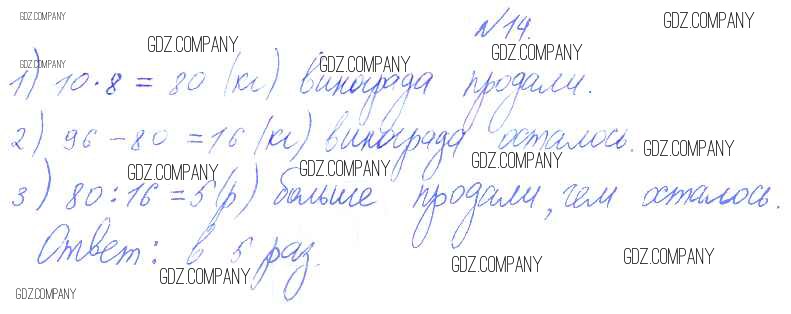 GDZ.COMPANY
№14.
GDZ.COMPANY
GDZ.COMPANY
GDZ.COMPANY
GDZ.COMPANY
GDZ.COMPANY
GDZ.COMPANY
1) 10·8 = 80 (кг) винограда продали.
2) 96 - 80 = 16 (кг) винограда осталось.
GDZ.COMPANY
GDZ.COMPANY
GDZ.COMPANY
GDZ.COMPANY
3) 80:16 = 5(р) больше продали, чем осталось.
Ответ: в 5 раз.
GDZ.COMPANY
GDZ.COMPANY
GDZ.COMPANY
GDZ.COMPANY